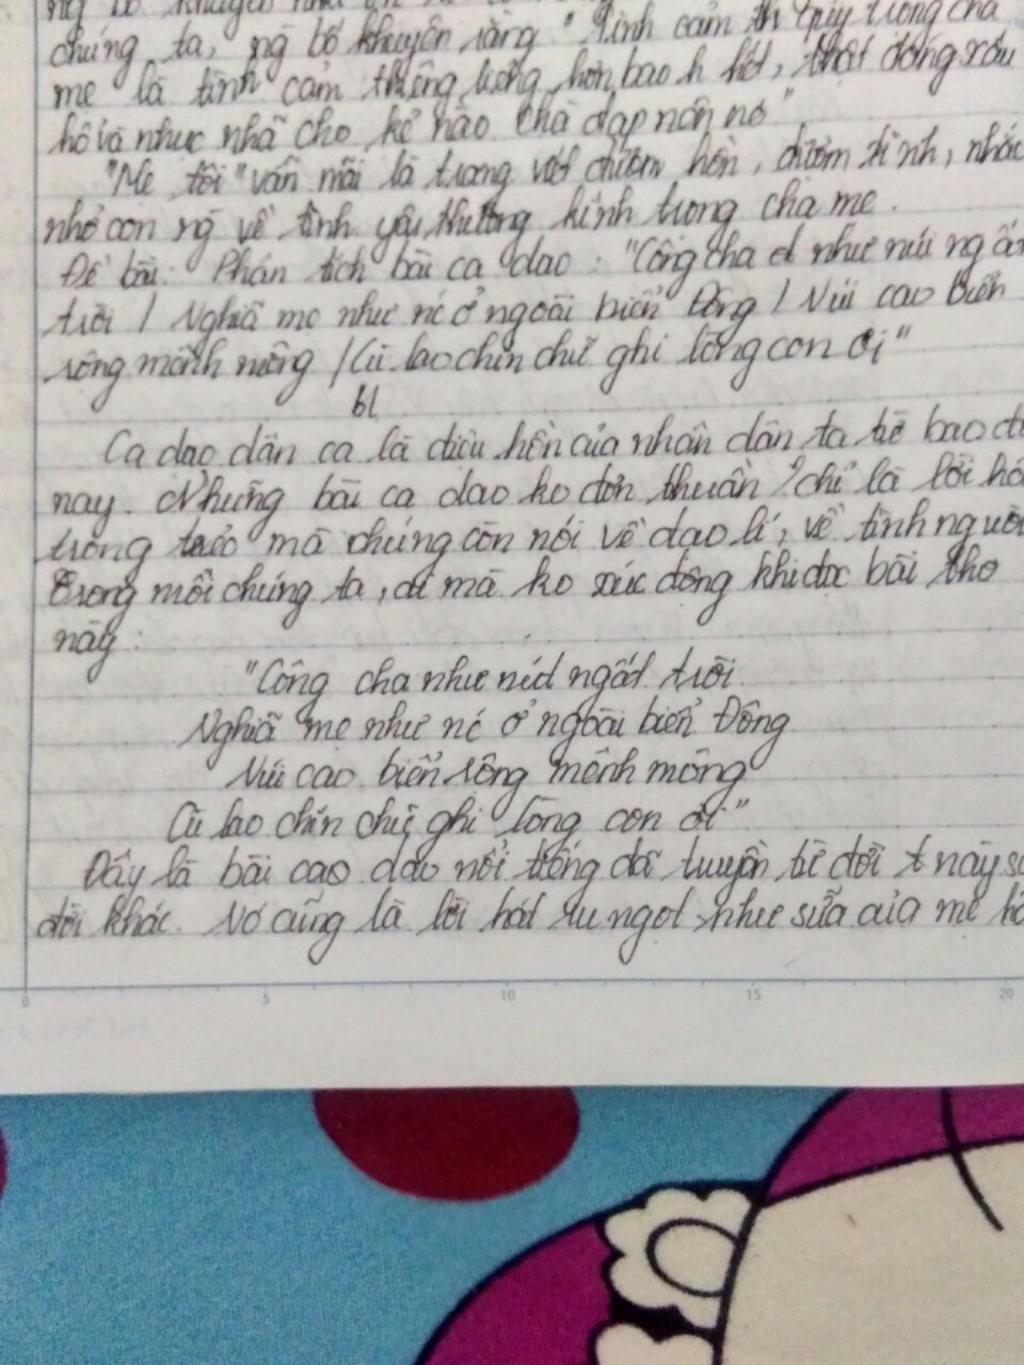 chúng ta, ng bố khuyên rằng "tình cảm th quý trọng cha
mẹ là tình cảm thiêng liêng hơn bao h hết, thật đáng xấu
hổ và nhục nhã cho kẻ nào chà đạp nên nó"
"Mẹ tôi" vẫn mãi là trang viết đượm hồn, đượm tình, nhắc
nhở con ng về tình yêu thương kính trọng cha mẹ.
Đề bài: Phân tích bài ca dao: "Công cha như núi ngất
trời / Nghĩa mẹ như nc ở ngoài biển Đông / Núi cao biển
rộng mênh mông / Cù lao chín chữ ghi lòng con ơi"
bl
Ca dao dân ca là điệu hồn của nhân dân ta từ bao đ
nay. Những bài ca dao ko đơn thuần chỉ là lời há
trong trẻo mà chúng còn nói về đạo lí, về tình người
Trong mỗi chúng ta, ai mà ko xúc động khi đọc bài thơ
này:
"Công cha như núi ngất trời
Nghĩa mẹ như nc ở ngoài biển Đông
Núi cao biển rộng mênh mông
Cù lao chín chữ ghi lòng con ơi"
Đây là bài cao dao nổi tiếng đã truyền từ đời t này s
đời khác. Nó cũng là lời hát ru ngọt như sữa của mẹ